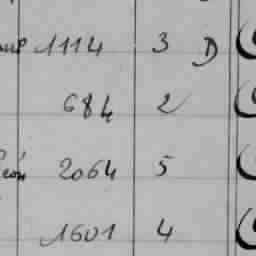 1114 3 D
684 2
2064 5
1601 4